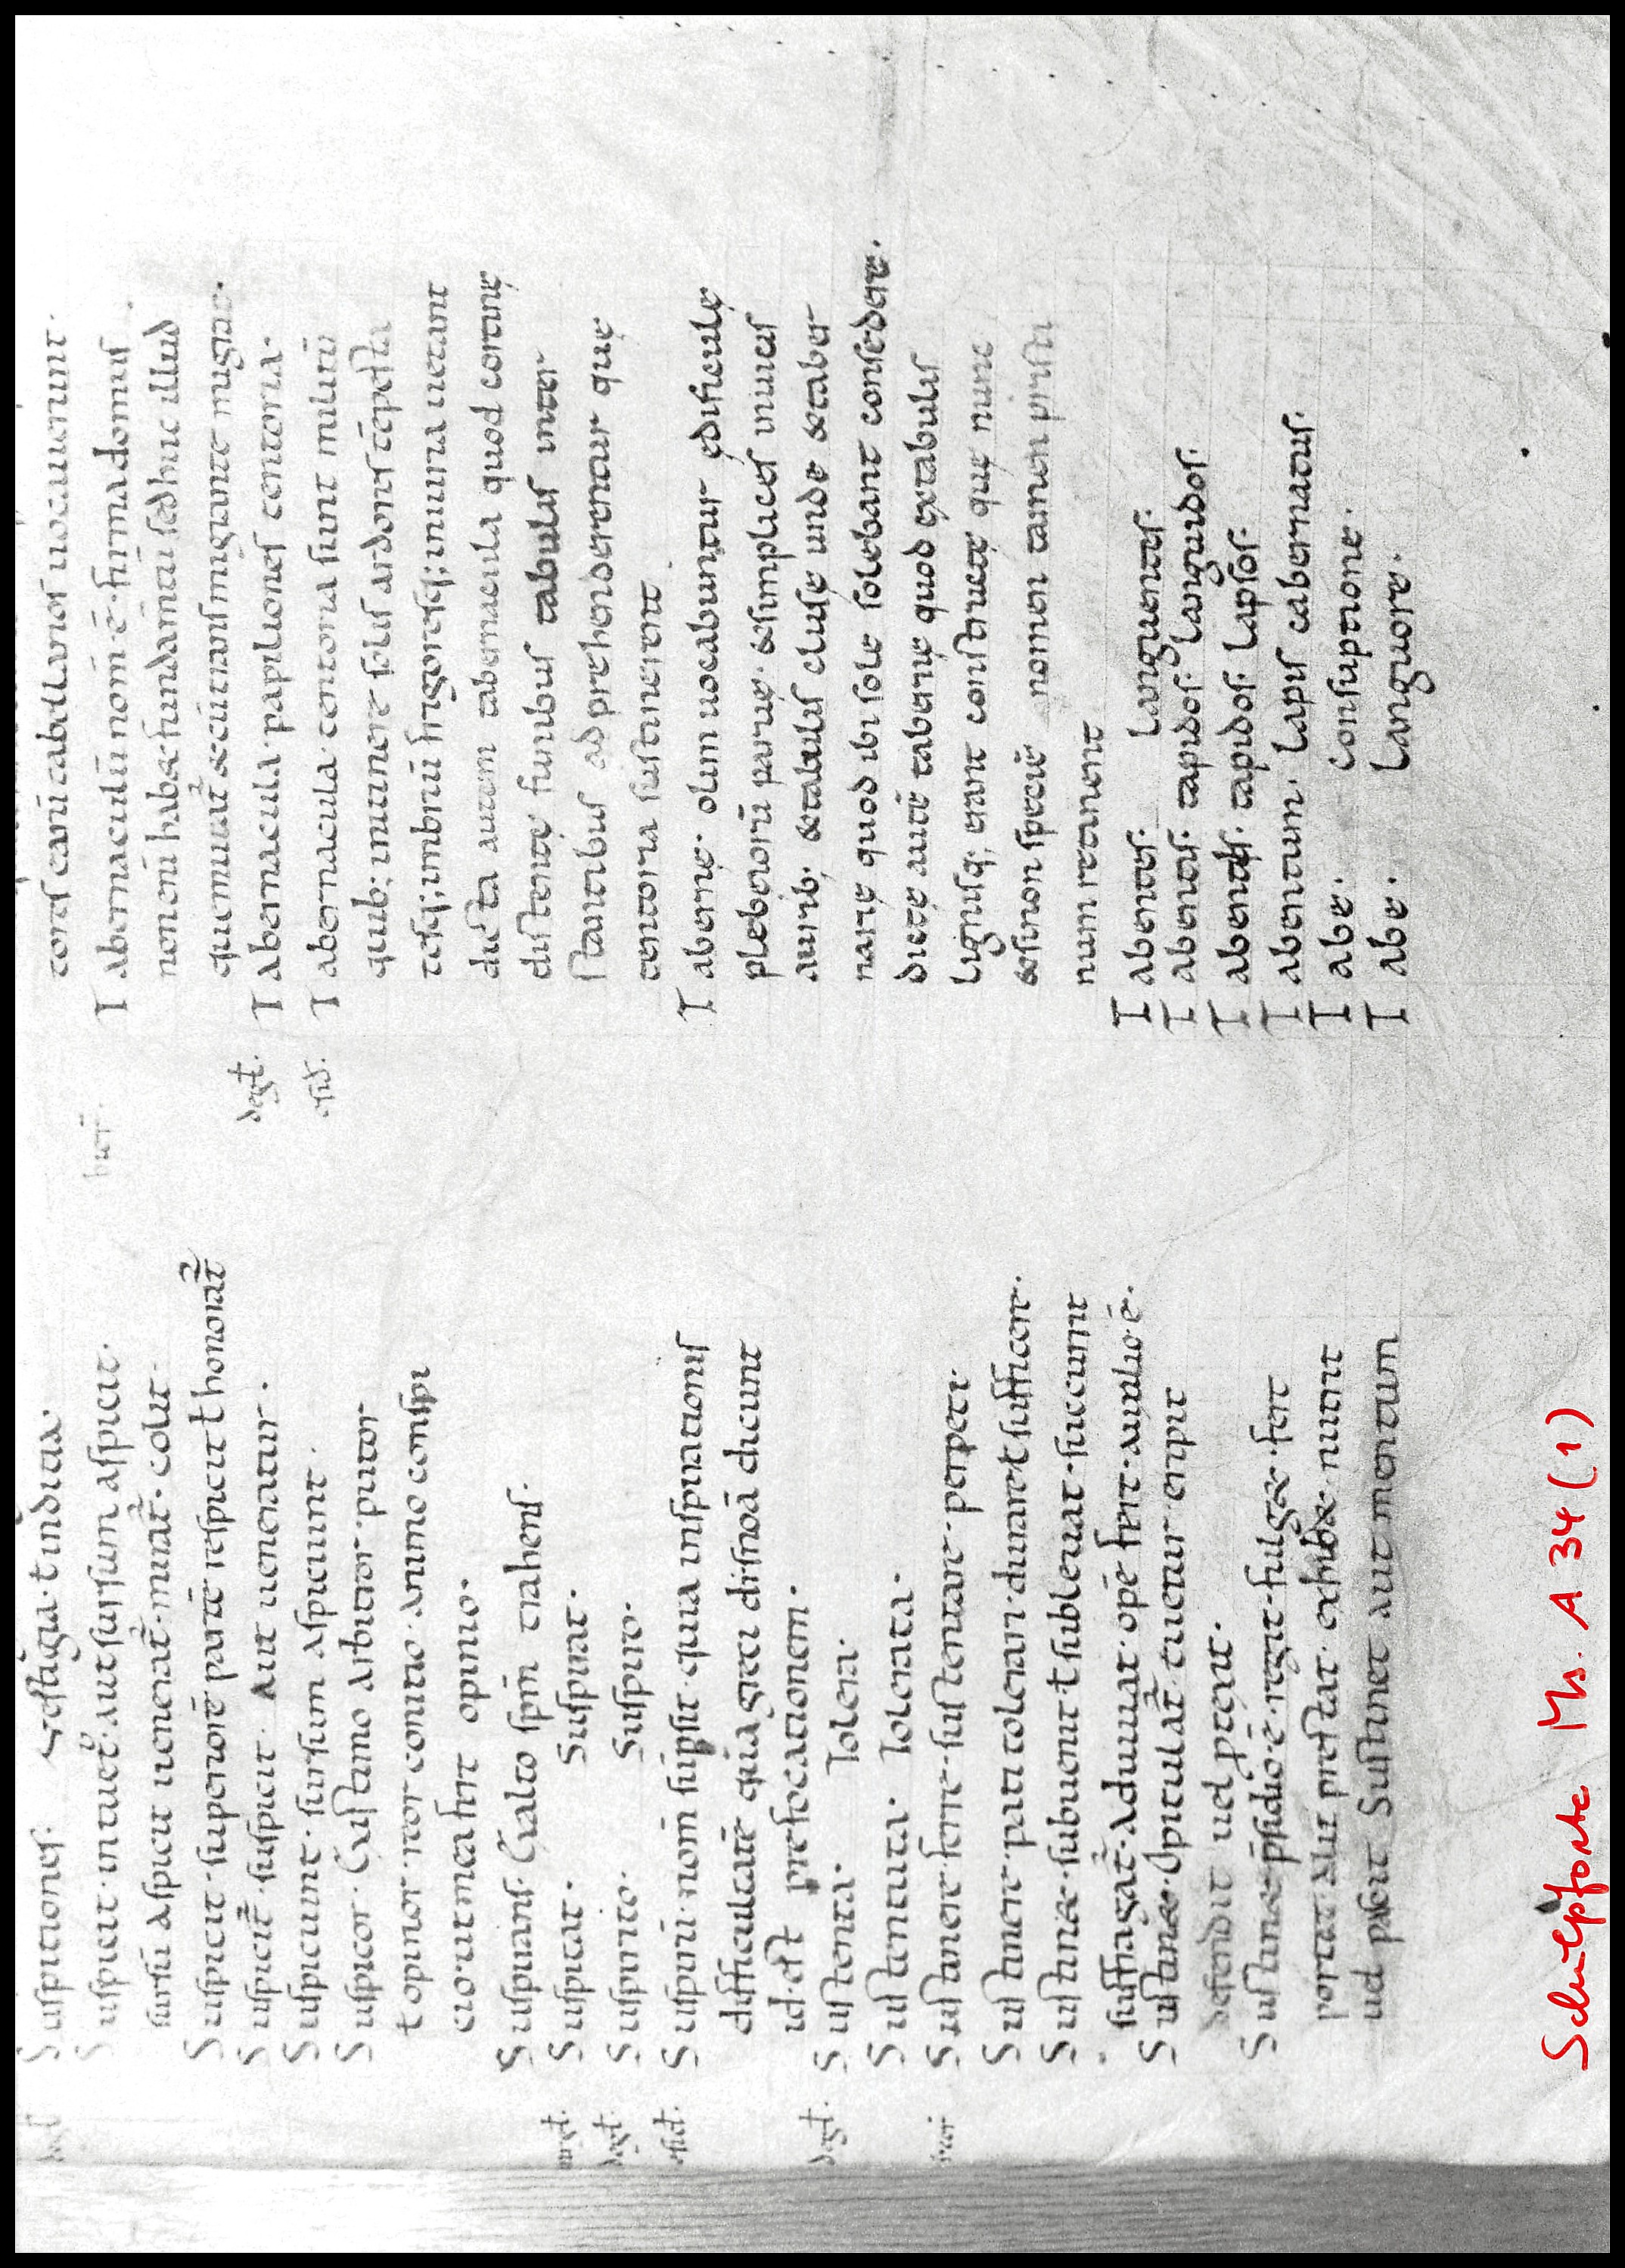 Suspitiones. Vestigia. ł inditia.
Suspicit. intuet᷑. aut sursum aspicit.
sursū aspicit uenerat᷑. mirat᷑. colit.
Suspicit. superiorē partē respicit ł honorat᷑
Suspicit᷑. suspicit. Aut ueneratur.
Suspiciunt. sursum aspiciunt.
Suspicor. Exustimo arbitror. putor
ł opinor. reor. conitio. animo conspi
cio. ut mea fert opinio.
Suspirans. Ex alto spm̄ trahens.
Suspitat. Suspirat.
Suspirito. Suspiro.
Suspiriū. nom̄ supsit. quia inspirationis
difficultatē quia greci disnoā dicunt
id. est prefocationem.
Sustenta. Tolera.
Sustentata. Tolerata.
Sustinere. ferre. sustentare. perpeti.
Sustinere. pati tolerare. durare ł sufficere.
Sustinet. subuenit. ł subleuat. succurrit
suffragat᷑. Adiuuat. opē fert. auxilio. ē.
Sustinet. Opitulat᷑. tuetur eripit
defendit uel ptexit.
Sustinet p̄sidio. ē. regit. fulget. fert
portat. Aut prestat. exhibet. nutrit
uel pascit Sustinet aut mentum
degł.
degł.
esidł.
degł.
tores canū cabellarios uocauerunt.
Tabernaculū nom̄. ē. firma domus
nomen habet fundam̄tū sed hinc illud
quemuit᷑ et cū transmigrante migrare.
Tabernacula. papiliones tentoria.
Tabernacula. tentoria sunt militū
quib; itinere solis ardores tēpesta
tesq; imbriū frigoresq; iniuria uetant
dicta autem tabernacula quod cortinę
distentę funibus tabulis inter
stantibus adprehenderentur quę
tentoria sustinerent.
Tabernę. olim uocabuntur ędificulę
plebeiorū paruę. et simplices in uicis
axrib. et tabulis clusę unde et taber
narię quod ibi sole solebant consedere.
dictę autē tabernę quod ex tabulis
lignisq; erant constructę quę nunc
et si non speciē nomen tamen pristi
num retinent
Tabentes. Languentes.
Tabentes. tapidos. languidos.
Tabentes. tapidos. lapsos.
Tabentum. lapis tabernatus.
Tabe. consuptione.
Tabe. Languore.
degł.
esid.
Schulpforte Ms. A 34 (1)